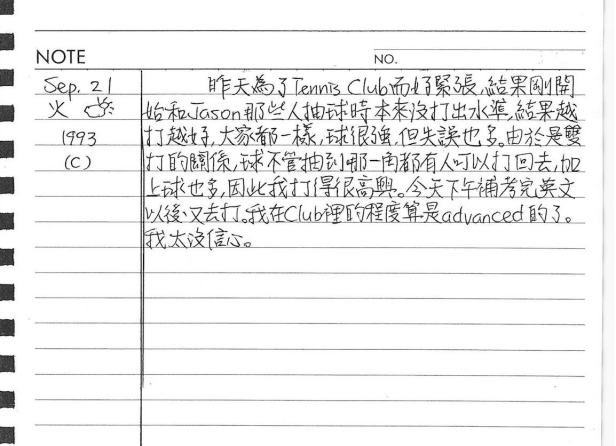 NOTE
NO.
Sep. 21
火
1993
(C)
昨天為了Tennis Club而好緊張,結果剛開
始和Jason那些人抽球時本來沒打出水準,結果越
打越好,大家都一樣,球很強,但失誤也多。由於是雙
打的關係,球不管抽到哪一角都有人可以打回去,加
上球也多,因此我打得很高興。今天下午補考完英文
以後,又去打。我在Club裡的程度算是advanced的了。
我太沒信心。